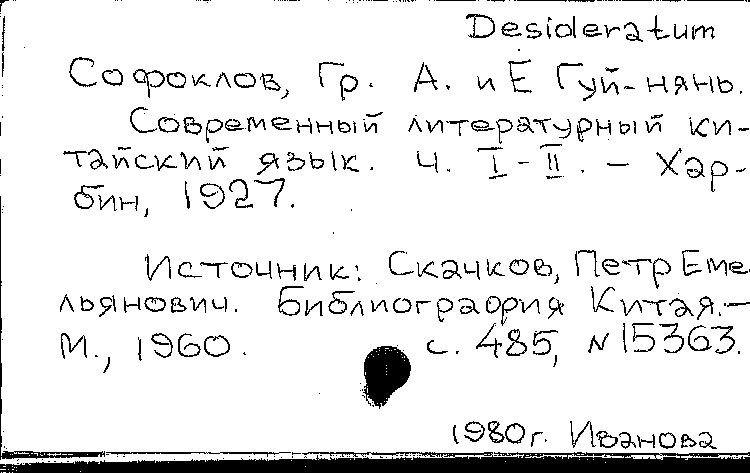 Desideratum
Софоклов, Гр. А. и Е Гуй-нянь.
Современный литературный ки-
тайский язык. Ч. I-II. – Хар-
бин, 1927.
Источник: Скачков, Петр Еме
льянович. Библиография Китая.–
М., 1960. с. 485, N 15363.
1980г. Иванова